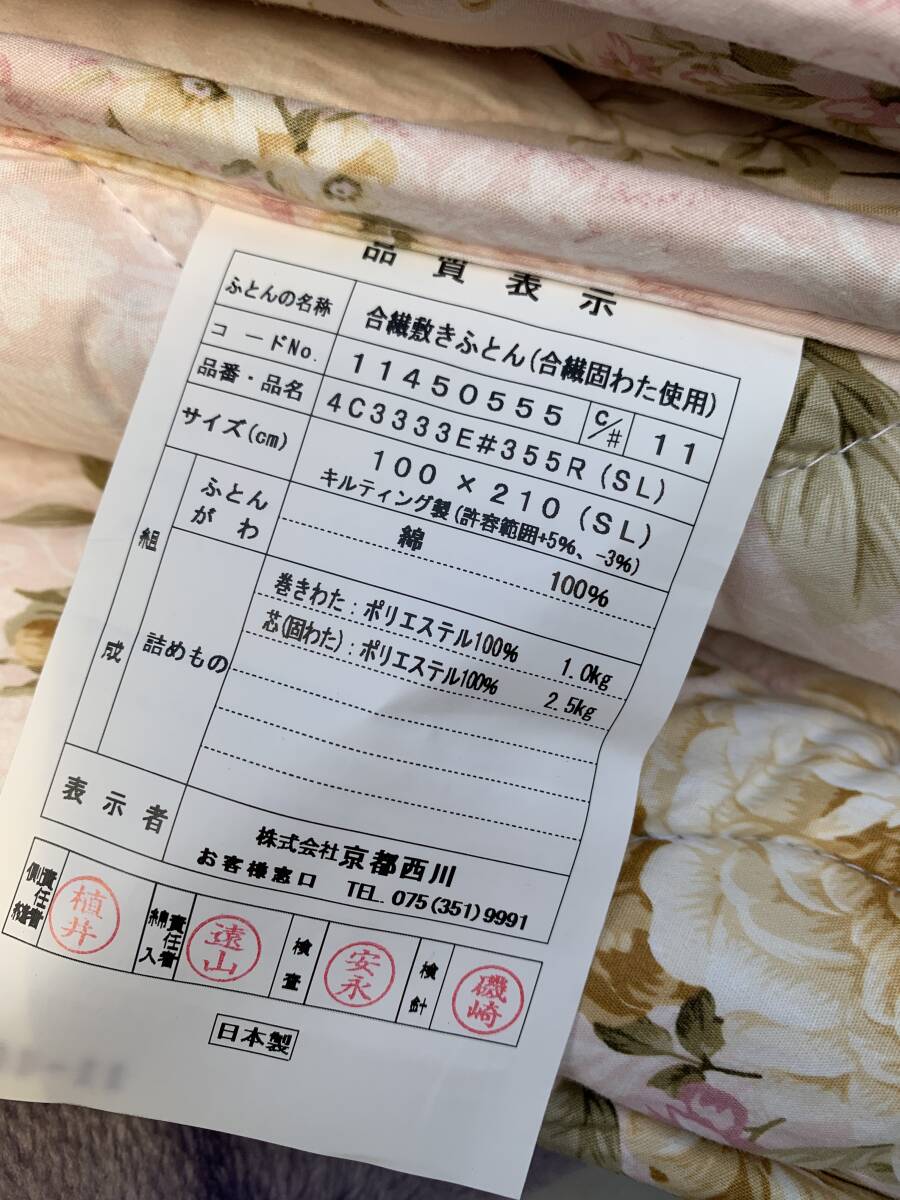 品質表示
ふとんの名称 合繊敷きふとん(合繊固わた使用)
コードNo. 11450555 C/# 11
品番・品名 4C3333E#355R(SL)
サイズ(cm) 100×210(SL)
キルティング製(許容範囲+5%、-3%)
組成
ふとんがわ 綿 100%
詰めもの 巻きわた:ポリエステル100% 1.0kg
芯(固わた):ポリエステル100% 2.5kg
表示者 株式会社 京都西川
お客様窓口 TEL. 075(351)9991
責任者 植井
綿入 責任者 遠山
検査 安永
検針 磯崎
日本製